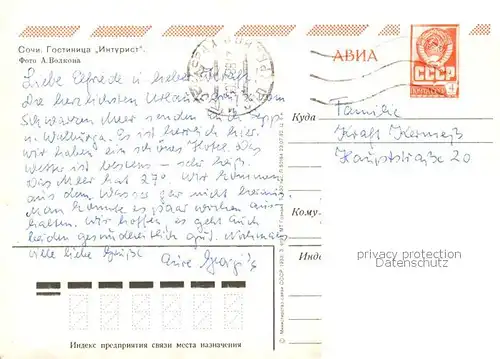 Сочи. Гостиница „Интурист".
Фото А. Волкова
АВИА
СССР
Liebe Elfriede u lieber
Die herzlichsten Urlaubsgrüße vom
Schwarzen Meer senden
u Walburga. Es ist herrlich hier.
Wir haben ein schönes Hotel. Das
Wetter ist bestens – sehr heiß.
Das Meer hat 27°. Wir kommen
aus dem Wasser gar nicht heraus.
Man könnte es paar Wochen aus-
halten. Wir hoffen es geht Euch
beiden gesundheitlich gut. Nochmals
viele liebe Grüße
Eure Georgi's
Куда
Familie
Kraft Hermeß
Hauptstraße 20
Кому
privacy protection
Datenschutz
Индекс предприятия связи места назначения